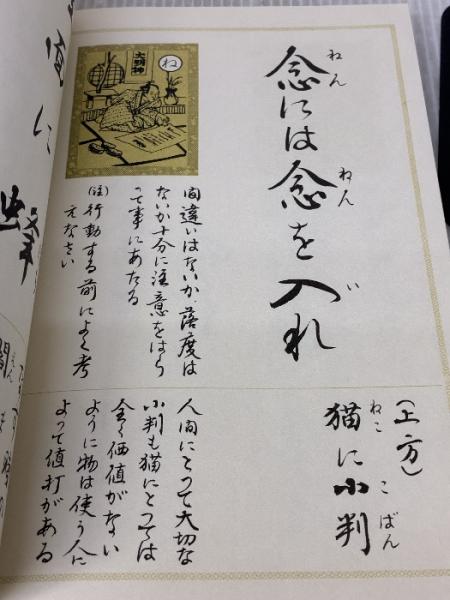 ねん ねん
念には念を入れ
ね
大明神
間違いはないか、落度は
ないか十分に注意をはら
って事にあたる
(注)行動する前によく考
えなさい
(上方)
ねこ こばん
猫に小判
人間にとって大切な
小判も猫にとっては
全く価値がない
ように物は使う人に
よって値打がある